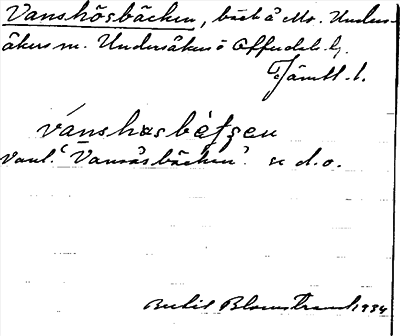 Vanshösbäcken, bäck å Mo. Unders-
åkers sn. Undersåkers o Offerdals tg.
Jämtl. l.
vánshøsbètsen
vanl. "Vansåsbäcken". se d.o.
Bertil Blomstrand 1934